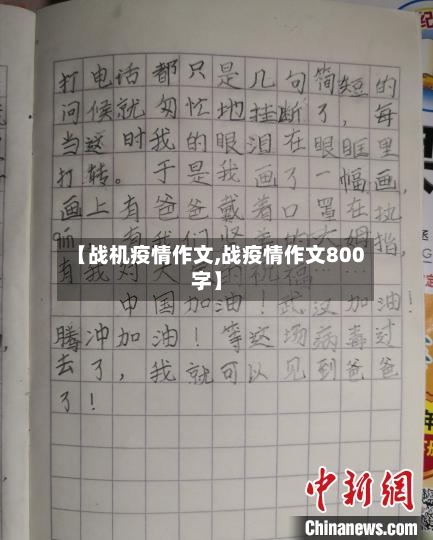 打电话都只是几句简短的
问候就匆忙地挂断了，每
当这时我的眼泪在眼眶里
打转。于是我画了一幅画，
画上有爸爸戴着口罩在执
qin
【战机疫情作文,战疫情作文800
字】
中国加油！武汉加油！
腾冲加油！等这场病毒过
去了，我就可以见到爸爸
了！
中新网
Chinanews.com